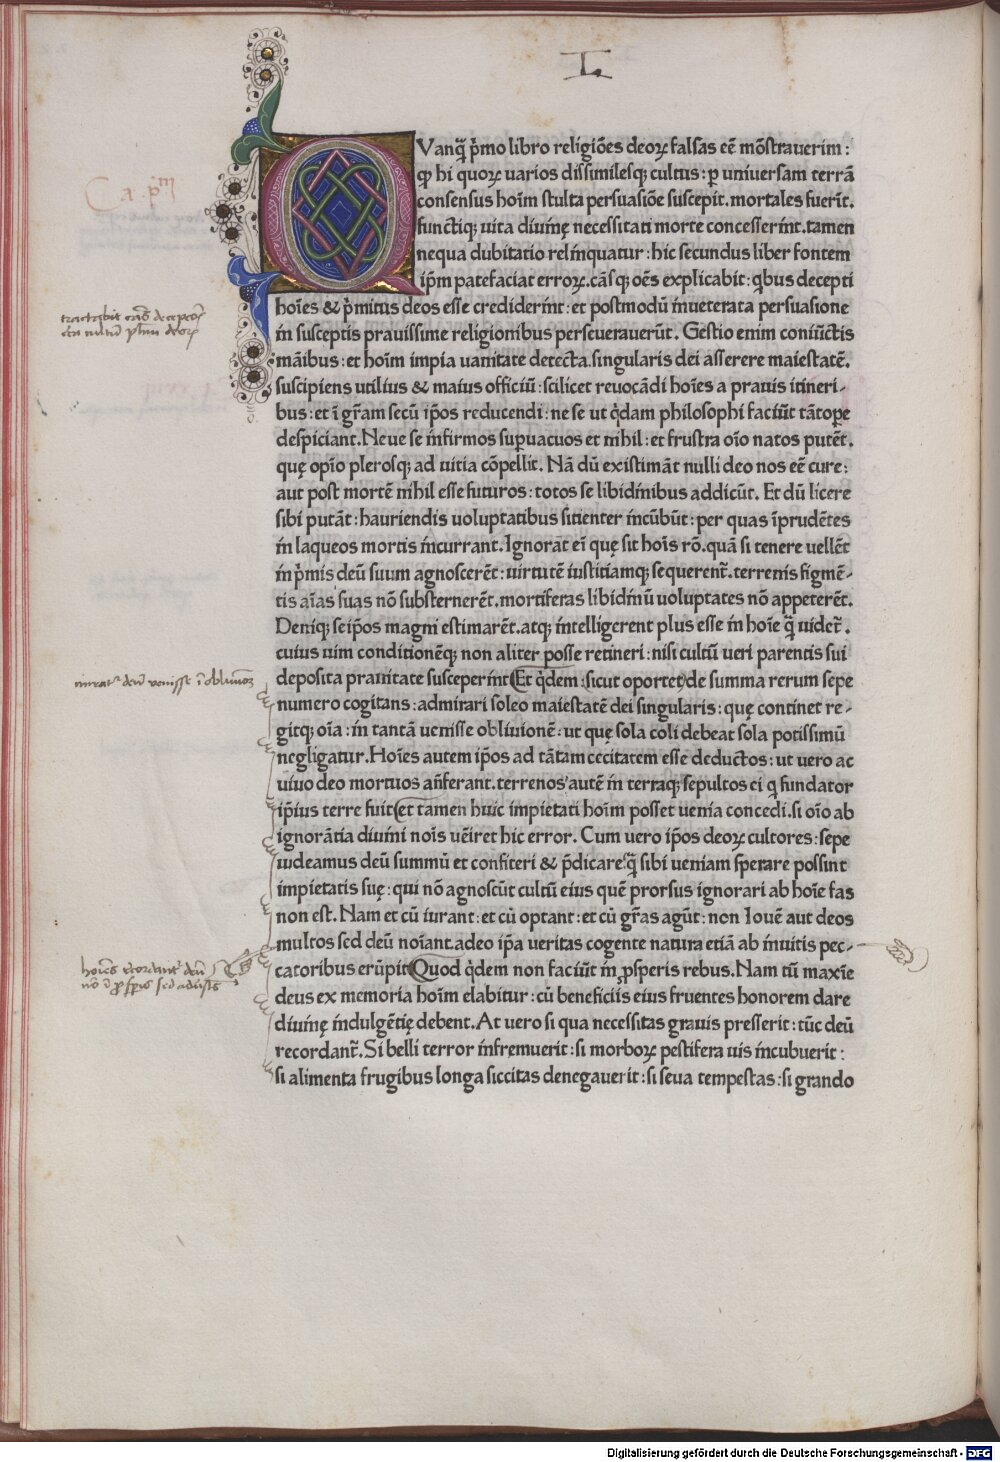 L
Vanq̃ p̃mo libro religiões deoꝝ falsas eẽ mõstrauerim:
Ca. p.m
ꝙ hi quoꝝ uarios dissimilesqꝫ cultus: ꝑ uniuersam terrã
consensus hoĩm stulta persuasiõe suscepit. mortales fuerĩt.
functiqꝫ uita diuinę necessitati morte concesserint. tamen
nequa dubitatio relinquatur: hic secundus liber fontem
ip̃m patefaciat erroꝝ. cãsqꝫ oẽs explicabit: q̃bus decepti
hoĩes & p̃mitus deos esse crediderint: et postmodũ inueterata persuasione
in susceptis prauissime religionibus perseuerauerũt. Gestio enim conuĩctis
mãibus: et hoĩm impia uanitate detecta. singularis dei asserere maiestatẽ.
suscipiens utilius & maius officiũ: scilicet reuocãdi hoĩes a prauis itineri-
bus: et ĩ gr̃am secũ ip̃os reducendi: ne se ut q̃dam philosophi faciũt tãtoꝑe
despiciant. Neue se infirmos suꝑuacuos et nihil: et frustra oĩo natos putẽt.
quę opĩo plerosqꝫ ad uitia cõpellit. Nã dũ existimãt nulli deo nos eẽ cure:
aut post mortẽ nihil esse futuros: totos se libidinibus addicũt. Et dũ licere
sibi putãt: hauriendis uoluptatibus sitienter incũbũt: per quas ĩprudẽtes
in laqueos mortis incurrant. Ignorãt eĩ quę sit hoĩs rõ. quã si tenere uellẽt
in p̃mis deũ suum agnoscerẽt: uirtutẽ iustitiamqꝫ sequerent̃. terrenis figmẽ-
tis aĩas suas nõ substernerẽt. mortiferas libidinũ uoluptates nõ appeterẽt.
Deniqꝫ seip̃os magni estimarẽt. atqꝫ intelligerent plus esse in hoĩe q̃ uidet̃.
cuius uim conditionẽqꝫ non aliter posse retineri: nisi cultũ ueri parentis sui
deposita prauitate susceperint (Et q̃dem: sicut oportet) de summa rerum sepe
numero cogitans: admirari soleo maiestatẽ dei singularis: quę continet re-
gitqꝫ oĩa: in tantã uenisse obliuionẽ: ut quę sola coli debeat sola potissimũ
negligatur. Hoĩes autem ip̃os ad tãtam cecitatem esse deductos: ut uero ac
uiuo deo mortuos añferant. terrenos autẽ in terraqꝫ sepultos ei q̃ fundator
ip̃ius terre fuit (et tamen huic impietati hoĩm posset uenia concedi. si oĩo ab
ignorãtia diuini noĩs uẽiret hic error. Cum uero ip̃os deoꝝ cultores: sepe
uideamus deũ summũ et confiteri & p̃dicare: q̃ sibi ueniam sperare possint
impietatis suę: qui nõ agnoscũt cultũ eius quẽ prorsus ignorari ab hoĩe fas
non est. Nam et cũ iurant: et cũ optant: et cũ gr̃as agũt: non Iouẽ aut deos
multos sed deũ noĩant. adeo ip̃a ueritas cogente natura etiã ab inuitis pec-
catoribus erũpit (Quod q̃dem non faciũt in ꝓsperis rebus. Nam tũ maxĩe
deus ex memoria hoĩm elabitur: cũ beneficiis eius fruentes honorem dare
diuinę indulgẽtię debent. At uero si qua necessitas grauis presserit: tũc deũ
recordant̃. Si belli terror infremuerit: si morboꝝ pestifera uis incubuerit:
si alimenta frugibus longa siccitas denegauerit: si seua tempestas: si grando
Digitalisierung gefördert durch die Deutsche Forschungsgemeinschaft - DFG